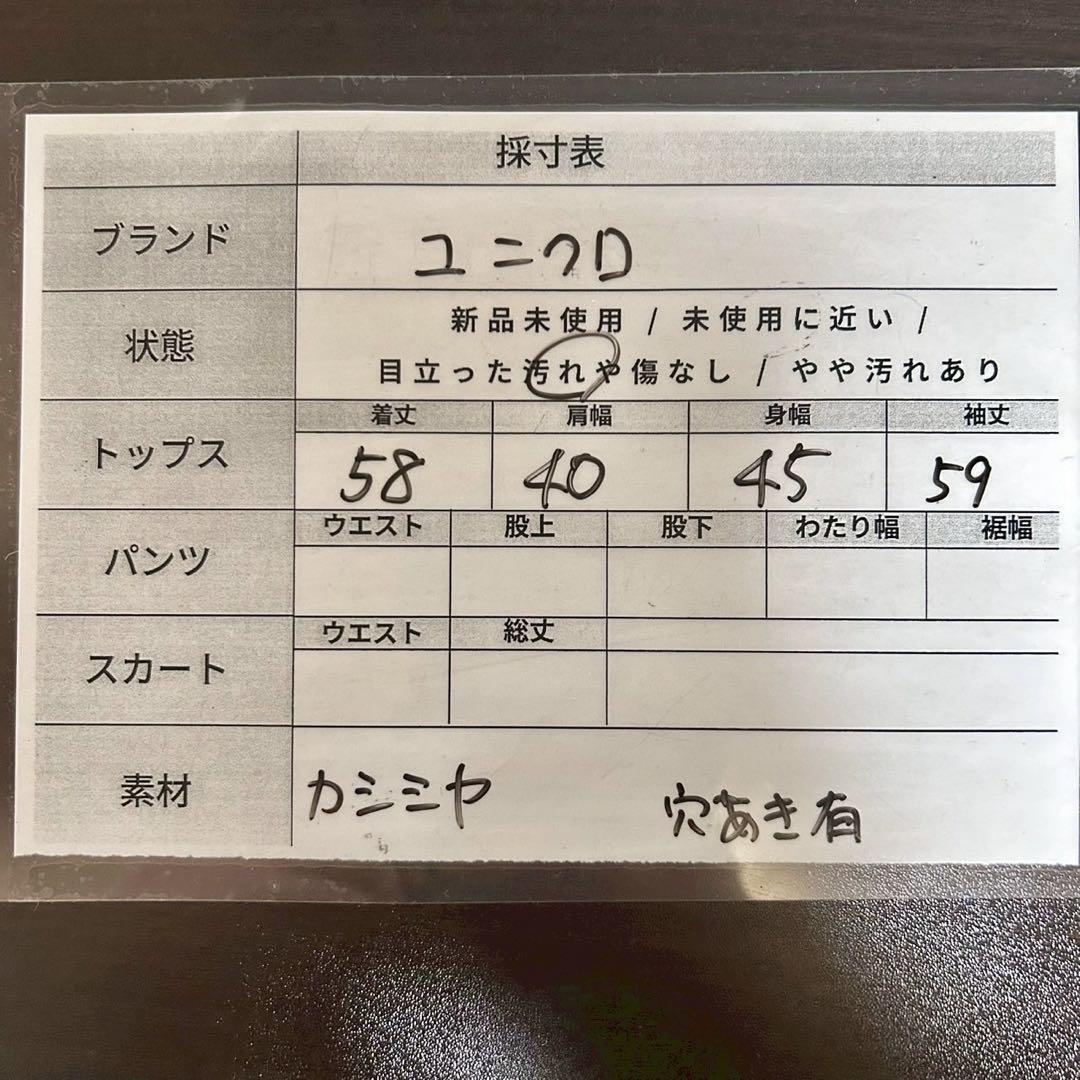 採寸表
ブランド ユニクロ
状態 新品未使用 / 未使用に近い /
目立った汚れや傷なし / やや汚れあり
トップス 着丈 肩幅 身幅 袖丈
58 40 45 59
パンツ ウエスト 股上 股下 わたり幅 裾幅
スカート ウエスト 総丈
素材 カシミヤ 穴あき有